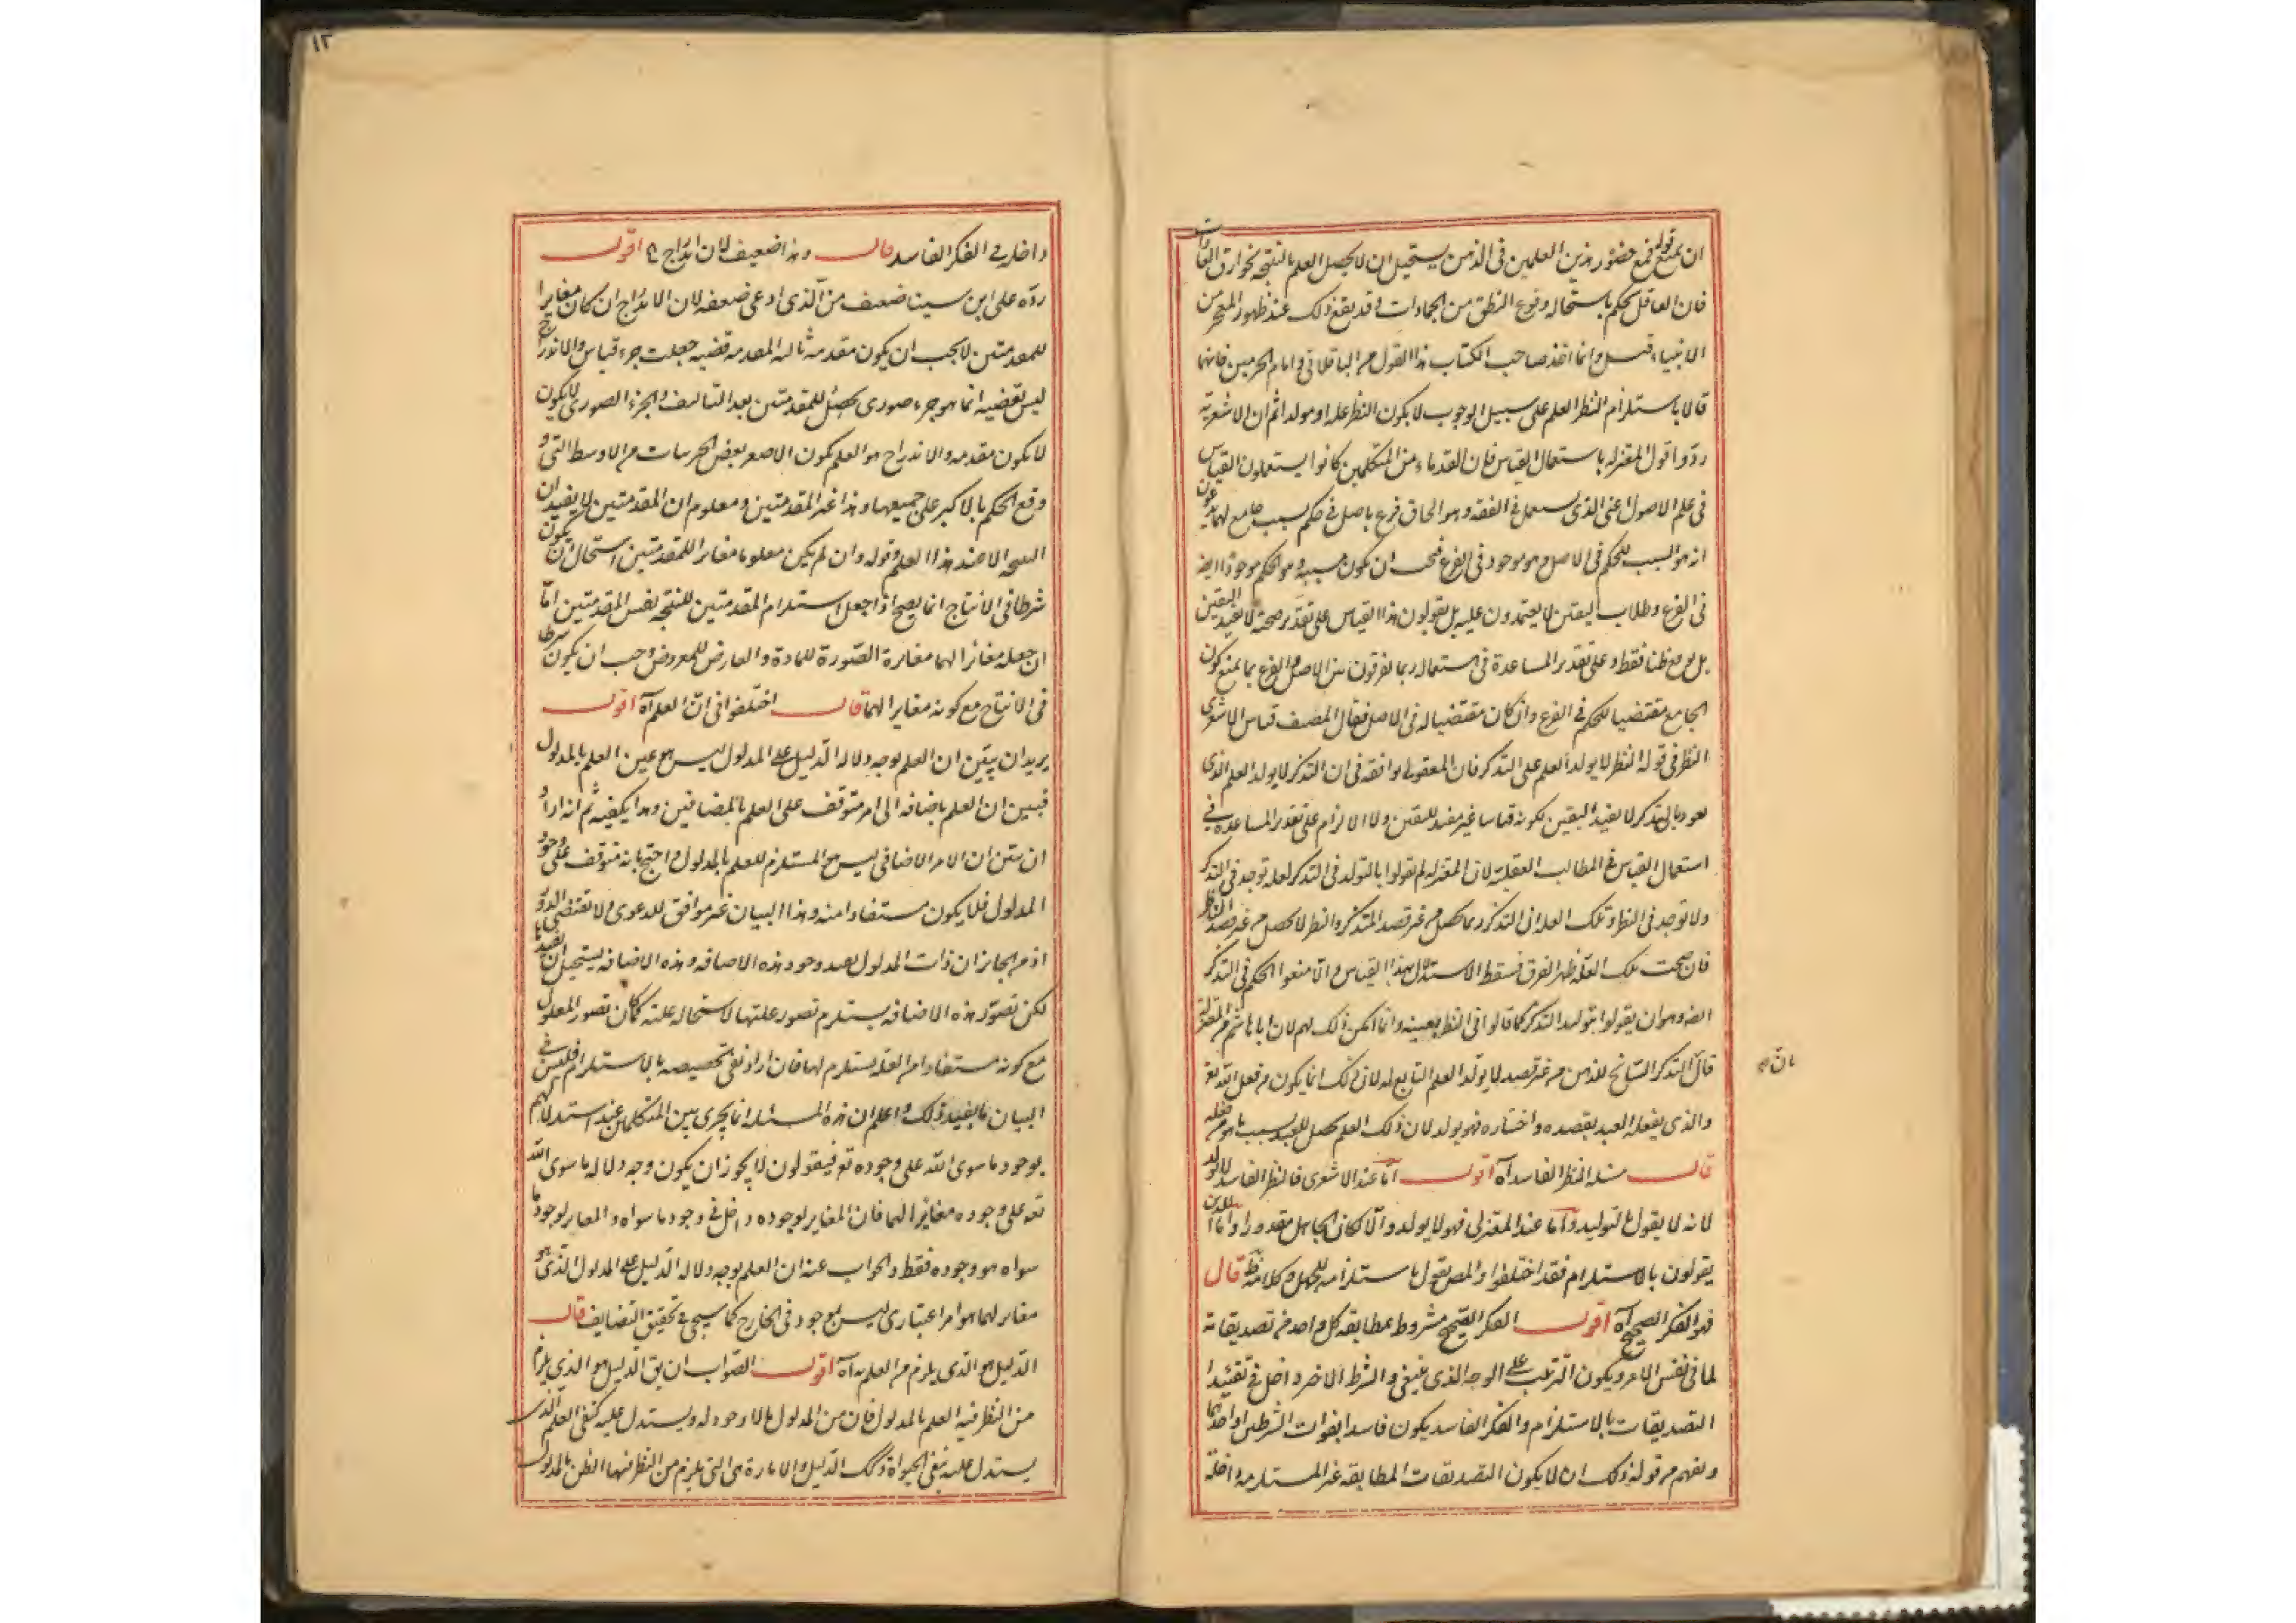 ان يمنع قوله فمع حضور هذين العلمين في الذهن يستحيل ان لا يحصل العلم بالنتيجة بخوارق العادات
فان العاقل يحكم باستحالة وقوع النطق من الجمادات وقد يقع ذلك عند ظهور المعجز من
الانبياء قيل وانما اخذ صاحب الكتاب هذا القول من الباقلاني وامام الحرمين فانهما
قالا باستلزام النظر العلم على سبيل الوجوب لا بكون النظر علة او مولدا ثم ان الاشعرية
ردوا قول المعتزلة باستعمال القياس فان القدماء من المتكلمين كانوا يستعملون القياس
في علم الاصول اعني الذي يستعمل في الفقه وهو الحاق فرع باصل في حكم بسبب جامع لهما يدعون
انه هو السبب للحكم في الاصل وهو موجود في الفرع فيجب ان يكون مسببه وهو الحكم موجودا ايضا
في الفرع وطلاب اليقين لا يعتمدون عليه بل يقولون هذا القياس على تقدير صحته لا يفيد اليقين
بل يوقع ظنا فقط وعلى تقدير المساعدة في استعماله ربما يفرقون بين الاصل والفرع بما يمنع كون
الجامع مقتضيا للحكم في الفرع وان كان مقتضيا له في الاصل فقال المصنف قياس الاشعري
النظر في قوله النظر لا يولد العلم على التذكر فان المعتزلي يوافقه في ان التذكر لا يولد العلم الذي
يعود بالتذكر لا يفيد اليقين لكونه قياسا غير مفيد لليقين ولا الالزام على تقدير المساعدة في
استعمال القياس في المطالب العقلية لان المعتزلة لم يقولوا بالتولد في التذكر لعلة توجد في التذكر
ولا توجد في النظر وتلك العلة ان التذكر ربما يحصل من غير قصد المتذكر والنظر لا يحصل من غير قصد الناظر
فان صحت تلك العلة ظهر الفرق فسقط الاستدلال بهذا القياس والا منعوا الحكم في التذكر
ايضا وهو ان يقولوا بتوليد التذكر كما قالوا في النظر بعينه وانما امكن ذلك لهم لان ابا هاشم من المعتزلة
قال التذكر السانح للذهن من غير قصد لا يولد العلم التابع له لان ذلك انما يكون من فعل الله تع
بان ه
والذي يفعله العبد بقصده واختياره فهو يولد لان ذلك العلم يحصل للعبد بسبب ما هو من فعله
قال مسئلة النظر الفاسد آه اقول اما عند الاشعري فالنظر الفاسد لا يولد
لانه لا يقول بالتوليد واما عند المعتزلي فهو لا يولد والا لكان الجاهل معذورا واما الذين
يقولون بالاستلزام فقد اختلفوا والمص يقول باستلزامه للجهل وكلامه ظ قال
فهو الفكر الصحيح آه اقول الفكر الصحيح مشروط بمطابقة كل واحد من تصديقاته
لما في نفس الامر وبكون الترتيب على الوجه الذي ينبغي والشرط الاخر داخل في تقييد
التصديقات بالاستلزام والفكر الفاسد يكون فاسدا بفوات الشرطين او احدهما
ويفهم من قوله ذلك ان لا يكون التصديقات المطابقة غير المستلزمة داخلة
١٢
داخله في الفكر الفاسد قال وهذا ضعيف لان اندراج ه اقول
رده على ابن سينا ضعيف من الذي ادعى ضعفه لان الاندراج ان كان مغايرا
للمقدمتين لا يجب ان يكون مقدمة ثالثة المقدمة قضية جعلت جزء قياس والاندراج
ليس بقضية انما هو جزء صوري يحصل للمقدمتين بعد التاليف والجزء الصوري للكون
لا يكون مقدمة والاندراج هو العلم بكون الاصغر بعض الجزئيات من الاوسط التي و
وقع الحكم بالاكبر على جميعها وهذا غير المقدمتين ومعلوم ان المقدمتين لا يفيدان
النتيجة الا عند هذا العلم وقوله وان لم يكن معلوما مغايرا للمقدمتين استحال ان يكون
شرطا في الانتاج انما يصح اذا جعل استلزام المقدمتين للنتيجة نفس المقدمتين اما
ان جعله مغايرا لهما مغايرة الصورة للمادة والعارض للمعروض وجب ان يكون شرطا
في الانتاج مع كونه مغايرا لهما قال اختلفوا في ان العلم آه اقول
يريد ان يبين ان العلم بوجه دلالة الدليل على المدلول ليس هو عين العلم بالمدلول
فيبين ان العلم باضافة الى امر متوقف على العلم بالمضافين وهذا يكفيه ثم انه اراد
ان يبين ان الامر الاضافي ليس هو المستلزم للعلم بالمدلول واحتج بانه متوقف على وجود
المدلول فلا يكون مستفادا منه وهذا البيان غير موافق للدعوى ولا يقتضي الدور
اذ من الجائز ان ذات المدلول يفيد وجود هذه الاضافة وهذه الاضافة يستحيل ان يفيدها
لكن تصور هذه الاضافة يستلزم تصور علتها لاستحالة علته كما كان تصور المعلول
مع كونه مستفادا من العلة يستلزم لها فان اراد نفي تخصيصه بالاستلزام فليس في
البيان ما يفيد ذلك واعلم ان هذه المسئلة انما يجري بين المتكلمين عند استدلالهم
بوجود ما سوى الله على وجوده تع فيقولون لا يجوز ان يكون وجه دلالة ما سوى الله
تعه على وجوده مغايرا لهما فان المغاير لوجوده داخل في وجود ما سواه والمغاير لوجود ما
سواه هو وجوده فقط والجواب عنه ان العلم بوجه دلالة الدليل على المدلول الذي هو
مغاير لهما هو امر اعتباري ليس بموجود في الخارج كما سيجي في تحقيق التضايف قال
الدليل هو الذي يلزم من العلم به آه اقول الصواب ان يق الدليل هو الذي يلزم
من النظر فيه العلم بالمدلول فان من المدلول ما لا وجود له ويستدل عليه كنفي العلم الذي
يستدل عليه بنفي الحيواة وكك الدليل والامارة هي التي يلزم من النظر فيها الظن بالمدلول